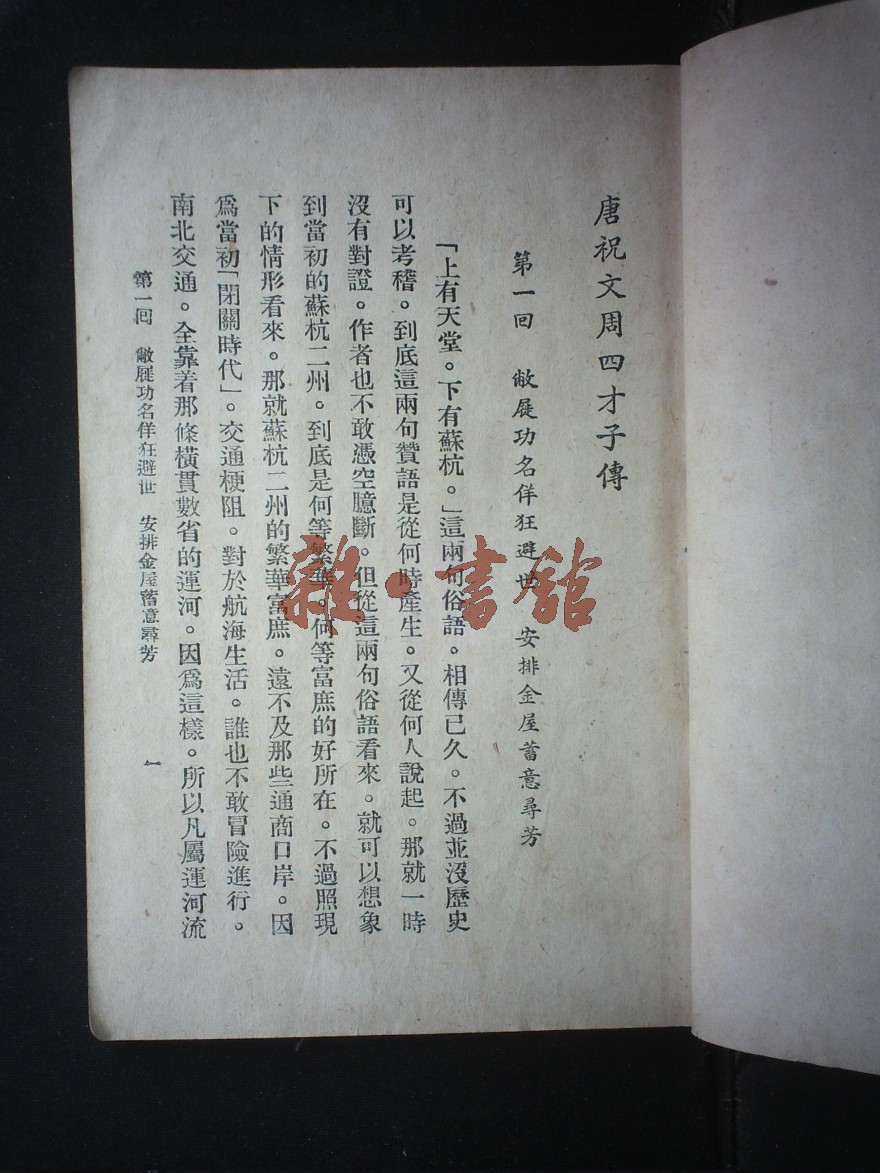 唐祝文周四才子傳
第一回 敝屣功名佯狂避世 安排金屋蓄意尋芳
「上有天堂。下有蘇杭。」這兩句俗語。相傳已久。不過並沒歷史
可以考稽。到底這兩句贊語是從何時產生。又從何人說起。那就一時
沒有對證。作者也不敢憑空臆斷。但從這兩句俗語看來。就可以想象
到當初的蘇杭二州。到底是何等繁華。何等富庶的好所在。不過照現
下的情形看來。那就蘇杭二州的繁華富庶。遠不及那些通商口岸。因
爲當初「閉關時代」。交通梗阻。對於航海生活。誰也不敢冒險進行。
南北交通。全靠着那條橫貫數省的運河。因爲這樣。所以凡屬運河流
第一回 敝屣功名佯狂避世 安排金屋蓄意尋芳 一
雜·書館